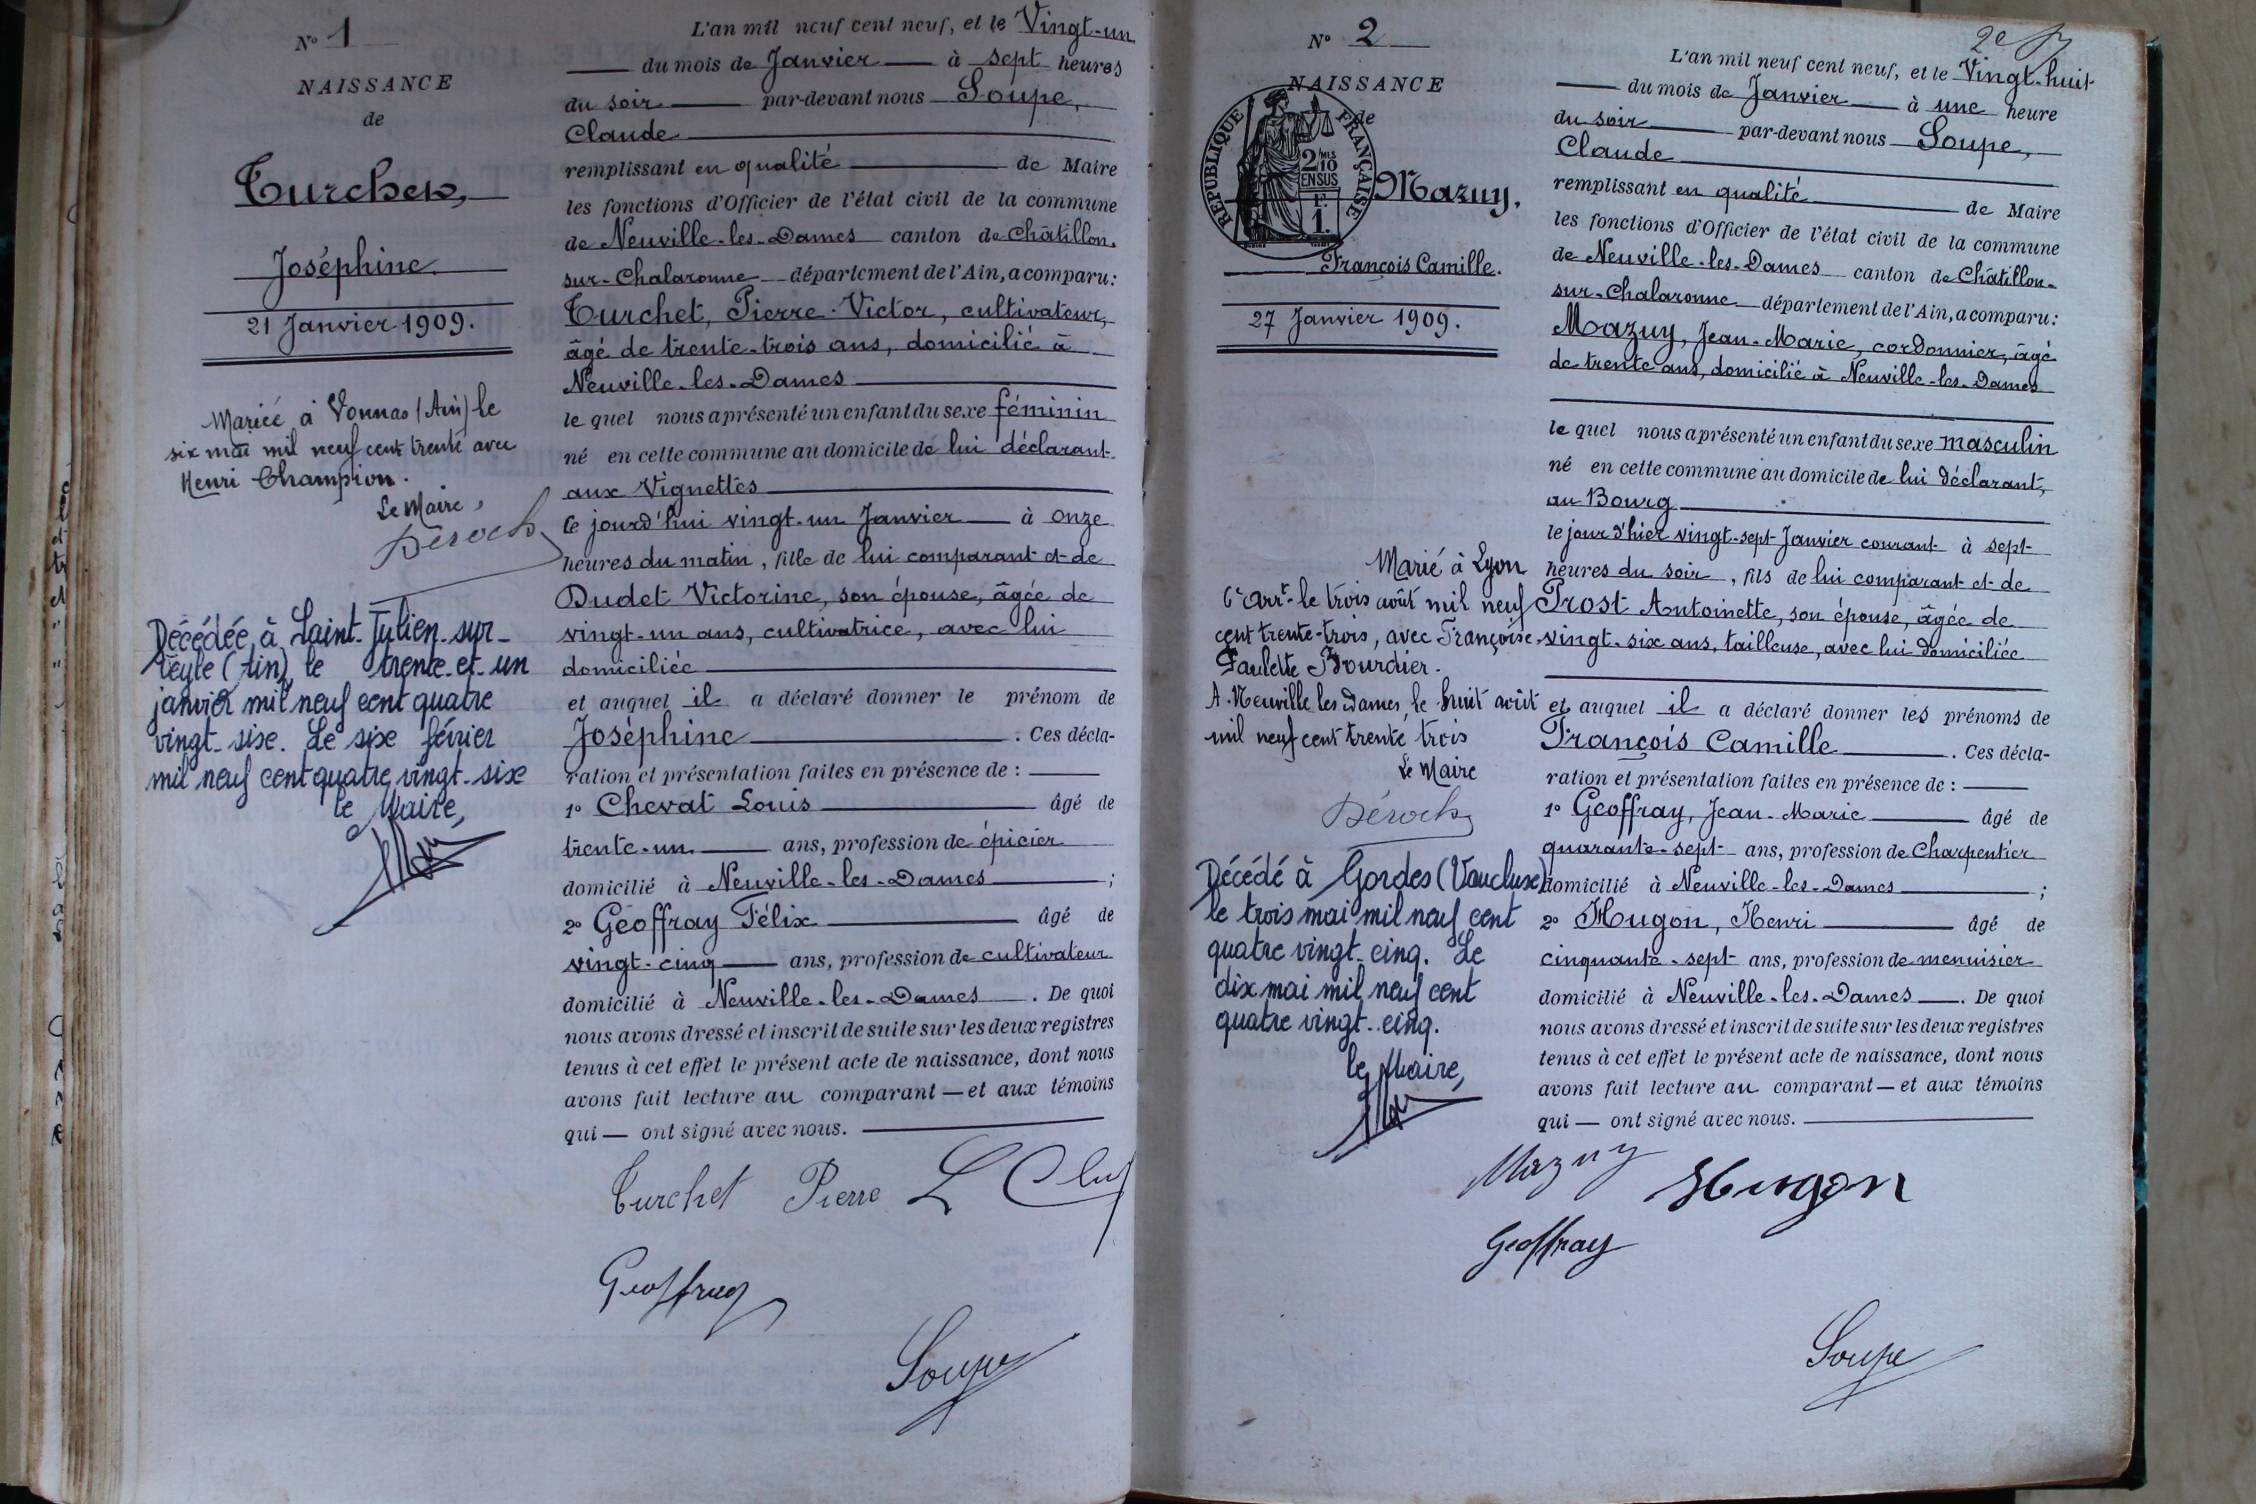 N° 1
NAISSANCE
de
Turchet,
Joséphine
21 Janvier 1909.
Mariée à Vonnas (Ain) le
six mai mil neuf cent trente avec
Henri Champion.
Le Maire,
Déroch
Décédée à Saint-Julien-sur-
Veyle (Ain), le trente et un
janvier mil neuf cent quatre
vingt-six. Le six février
mil neuf cent quatre vingt-six
le Maire,
L'an mil neuf cent neuf, et le Vingt-un
du mois de Janvier à sept heures
du soir par-devant nous Soupe,
Claude
remplissant en qualité de Maire
les fonctions d'Officier de l'état civil de la commune
de Neuville-les-Dames canton de Châtillon-
sur-Chalaronne département de l'Ain, a comparu:
Turchet, Pierre-Victor, cultivateur,
âgé de trente-trois ans, domicilié à
Neuville-les-Dames
le quel nous a présenté un enfant du sexe féminin
né en cette commune au domicile de lui déclarant
aux Vignettes
ce jourd'hui vingt-un Janvier à onze
heures du matin, fille de lui comparant et de
Dudet Victorine, son épouse, âgée de
vingt-un ans, cultivatrice, avec lui
domiciliée
et auquel il a déclaré donner le prénom de
Joséphine. Ces décla-
ration et présentation faites en présence de :
1° Chevat Louis âgé de
trente-un ans, profession de épicier
domicilié à Neuville-les-Dames ;
2° Geoffray Félix âgé de
vingt-cinq ans, profession de cultivateur
domicilié à Neuville-les-Dames. De quoi
nous avons dressé et inscrit de suite sur les deux registres
tenus à cet effet le présent acte de naissance, dont nous
avons fait lecture au comparant — et aux témoins
qui — ont signé avec nous.
Turchet Pierre L
Geoffray
Soupe
N° 2
NAISSANCE
de
RÉPUBLIQUE FRANÇAISE
2/10
EN SUS
F.
1.
Mazuy,
François Camille.
27 Janvier 1909.
Marié à Lyon
6e arrt le trois août mil neuf
cent trente-trois, avec Françoise
Paulette Bourdier.
A Neuville les Dames, le huit août
mil neuf cent trente trois
Le Maire
Déroch
Décédé à Gordes (Vaucluse)
le trois mai mil neuf cent
quatre vingt-cinq. Le
dix mai mil neuf cent
quatre vingt-cinq.
le Maire,
2e
L'an mil neuf cent neuf, et le Vingt-huit
du mois de Janvier à une heure
du soir par-devant nous Soupe,
Claude
remplissant en qualité de Maire
les fonctions d'Officier de l'état civil de la commune
de Neuville-les-Dames canton de Châtillon-
sur-Chalaronne département de l'Ain, a comparu:
Mazuy, Jean-Marie, cordonnier, âgé
de trente ans, domicilié à Neuville-les-Dames
le quel nous a présenté un enfant du sexe masculin
né en cette commune au domicile de lui déclarant,
au Bourg
le jour d'hier vingt-sept Janvier courant à sept
heures du soir, fils de lui comparant et de
Prost Antoinette, son épouse, âgée de
vingt-six ans, tailleuse, avec lui domiciliée
et auquel il a déclaré donner les prénoms de
François Camille. Ces décla-
ration et présentation faites en présence de :
1° Geoffray, Jean-Marie âgé de
quarante-sept ans, profession de Charpentier
domicilié à Neuville-les-Dames ;
2° Hugon, Henri âgé de
cinquante-sept ans, profession de menuisier
domicilié à Neuville-les-Dames. De quoi
nous avons dressé et inscrit de suite sur les deux registres
tenus à cet effet le présent acte de naissance, dont nous
avons fait lecture au comparant — et aux témoins
qui — ont signé avec nous.
Mazuy Hugon
Geoffray
Soupe